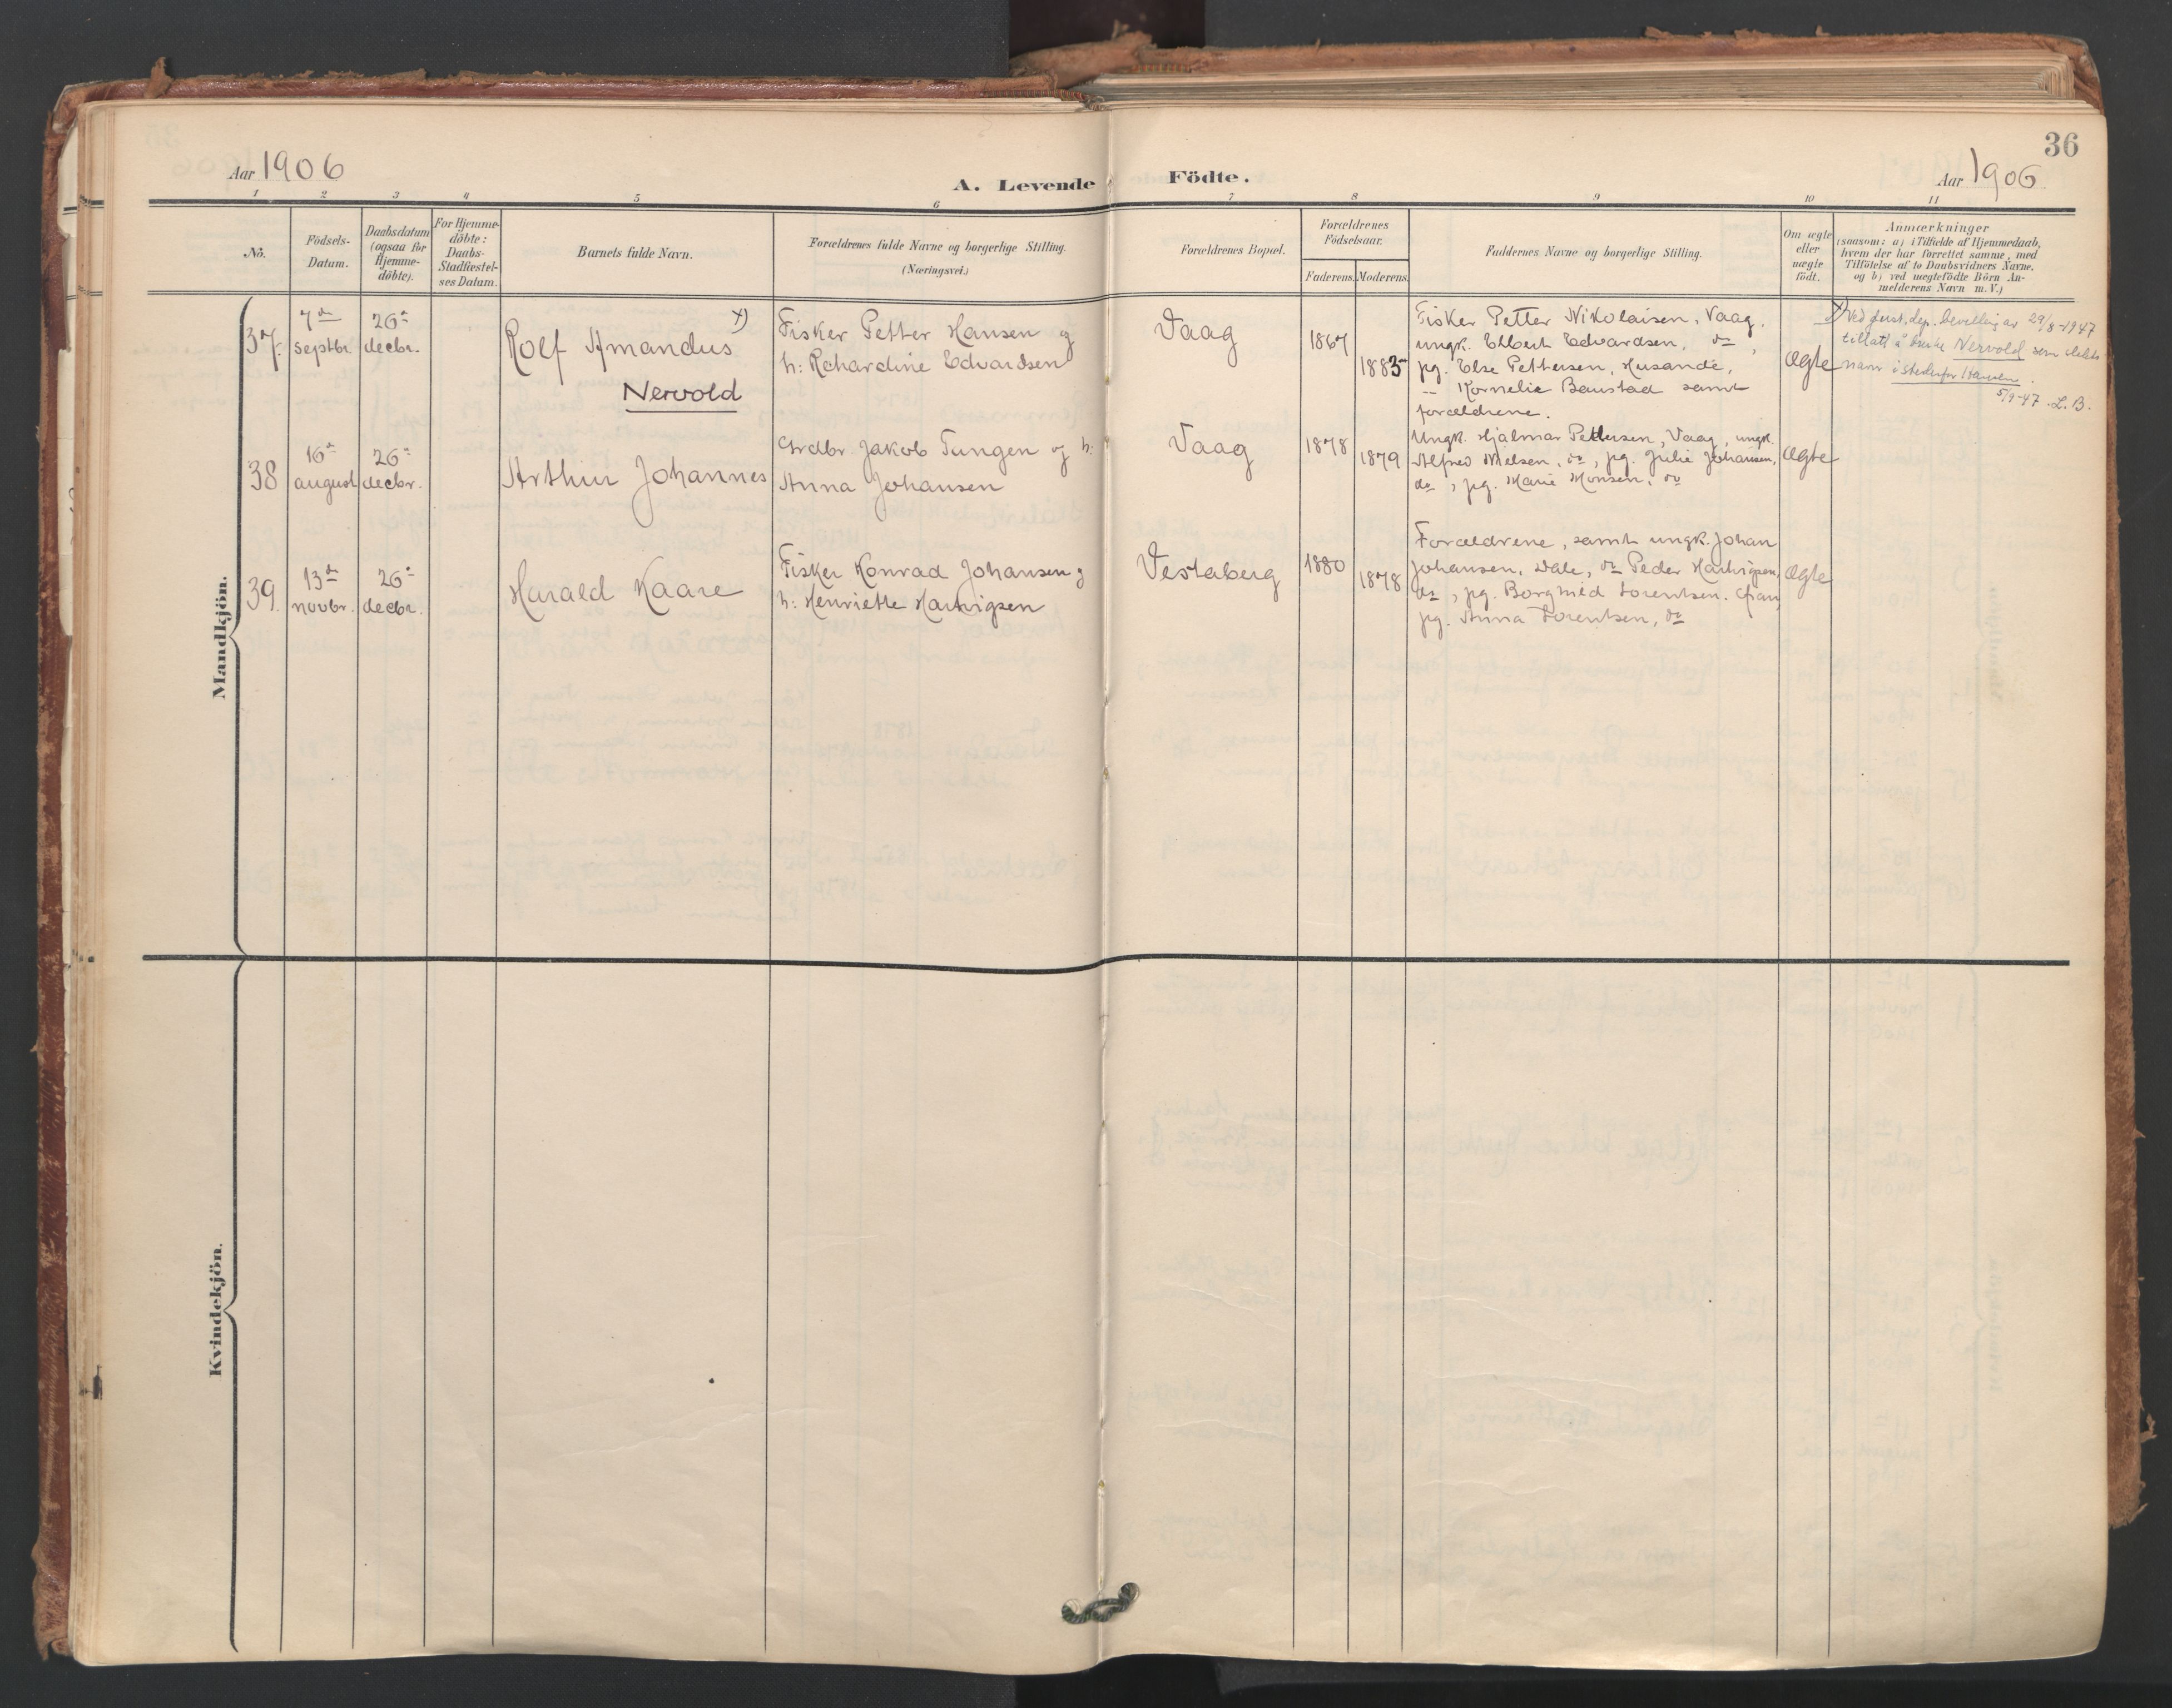 36
Aar 1906
A. Levende Födte.
Aar 1906
1 2 3 4 5 6 7 8 9 10 11
No.
Födsels-
Datum.
Daabsdatum
(ogsaa for
Hjemme-
döbte).
For Hjemme-
döbte:
Daabs-
Stadfæstel-
ses Datum.
Barnets fulde Navn.
Forældrenes fulde Navne og borgerlige Stilling.
(Næringsvei.)
Forældrenes Bopæl.
Forældrenes
Födselsaar.
Faderens. Moderens.
Faddernes Navne og borgerlige Stilling.
Om ægte
eller
uægte
födt.
Anmærkninger
(saasom: a) i Tilfælde af Hjemmedaab,
hvem der har forrettet samme, med
Tilföielse af to Daabsvidners Navne.
og b) ved uægtefödte Börn An-
melderens Navn m. V.)
Mandkjön.
37.
7de
septbr.
26de
decbr.
Rolf Amandus x)
Nervold
Fisker Petter Hansen og
h: Rchardine Edvardsen
Vaag
1867
1883
Fisker Petter Nikolaisen, Vaag.
ungk. Elbert Edvardsen, do,
pg. Else Pettersen, Husande,
" Kornelie Baustad samt
forældrene.
Ægte
x) Ved just.dep. bevilling av 29/8-1947
tillatt å bruke Nervold som slekts-
navn istedenfor Hansen.
5/9-47. L.B.
38
16de
august
26de
decbr.
Arthur Johannes
Grdbr. Jakob Tungen og h:
Anna Johansen
Vaag
1878
1879
Ungk. Hjalmar Pettersen, Vaag, ungk.
Alfred Nielsen, do, pg. Julie Johansen,
do, pg. Marie Monsen, do
Ægte
39.
13de
novbr.
26de
decbr.
Harald Kaare
Fisker Konrad Johansen og
h: Henriette Hartvigsen
Vestaberg
1880
1878
Forældrene, samt ungk. Johan
Johansen, Dale, do Peder Hartvigsen,
do, pg. Borghild Lorentsen,
pg. Anna Lorentsen, do
Ægte
Kvindekjön.